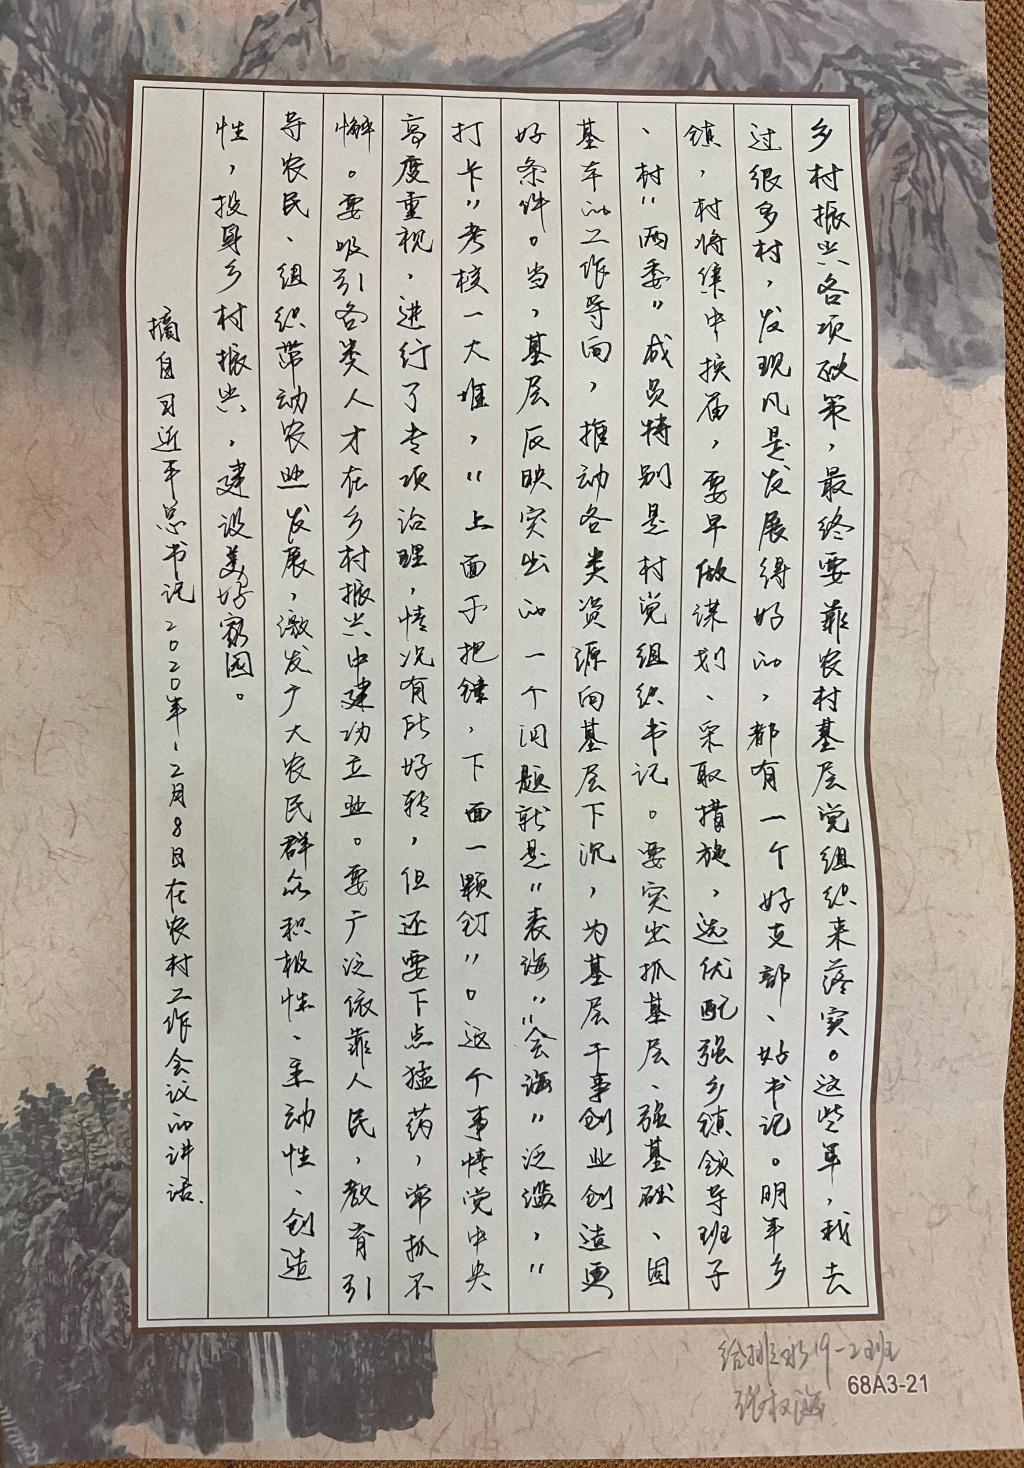 乡村振兴各项政策，最终要靠农村基层党组织来落实。这些年，我去
过很多村，发现凡是发展得好的，都有一个好支部、好书记。明年乡
镇，村将集中换届，要早做谋划、采取措施，选优配强乡镇领导班子
、村“两委”成员特别是村党组织书记。要突出抓基层、强基础、固
基本的工作导向，推动各类资源向基层下沉，为基层干事创业创造更
好条件。当，基层反映突出的一个问题就是“表海”“会海”泛滥，“
打卡”考核一大堆，“上面千把锤，下面一颗钉”。这个事情党中央
高度重视，进行了专项治理，情况有所好转，但还要下点猛药，常抓不
懈。要吸引各类人才在乡村振兴中建功立业。要广泛依靠人民，教育引
导农民、组织带动农业发展，激发广大农民群众积极性、主动性、创造
性，投身乡村振兴，建设美好家园。
摘自习近平总书记2020年12月8日在农村工作会议的讲话.
给排水19-2班
张权海
68A3-21